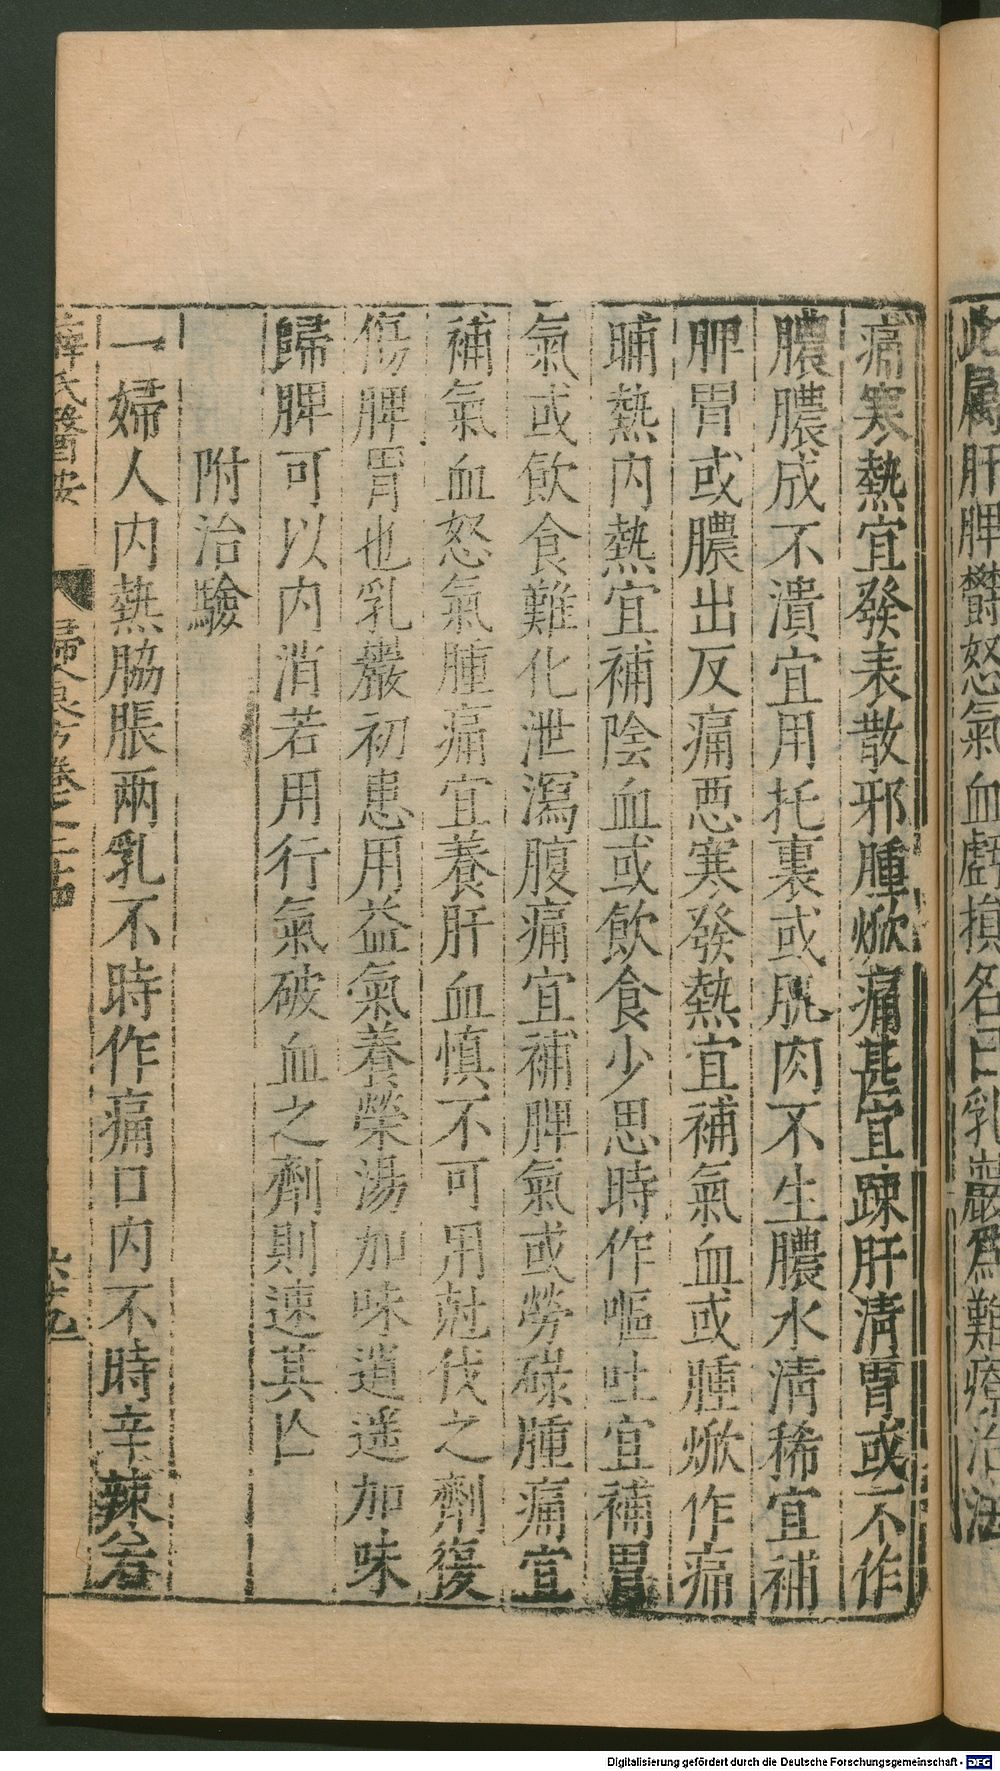 此属肝脾鬱怒氣血虧損名曰乳巖爲難療治法
痛寒熱宜發表散邪腫焮痛甚宜踈肝清胃或不作
膿膿成不潰宜用托裏或肌肉不生膿水清稀宜補
脾胃或膿出反痛惡寒發熱宜補氣血或腫焮作痛
晡熱内熱宜補陰血或飲食少思時作嘔吐宜補胃
氣或飲食難化泄瀉腹痛宜補脾氣或勞碌腫痛宜
補氣血怒氣腫痛宜養肝血慎不可用尅伐之劑復
傷脾胃也乳巖初患用益氣養榮湯加味逍遥加味
歸脾可以内消若用行氣破血之劑則速其亡
附治驗
一婦人内熱脇脹兩乳不時作痛口内不時辛辣若
薛氏醫按 婦人良方卷之二十四 六十九
Digitalisierung gefördert durch die Deutsche Forschungsgemeinschaft - DFG